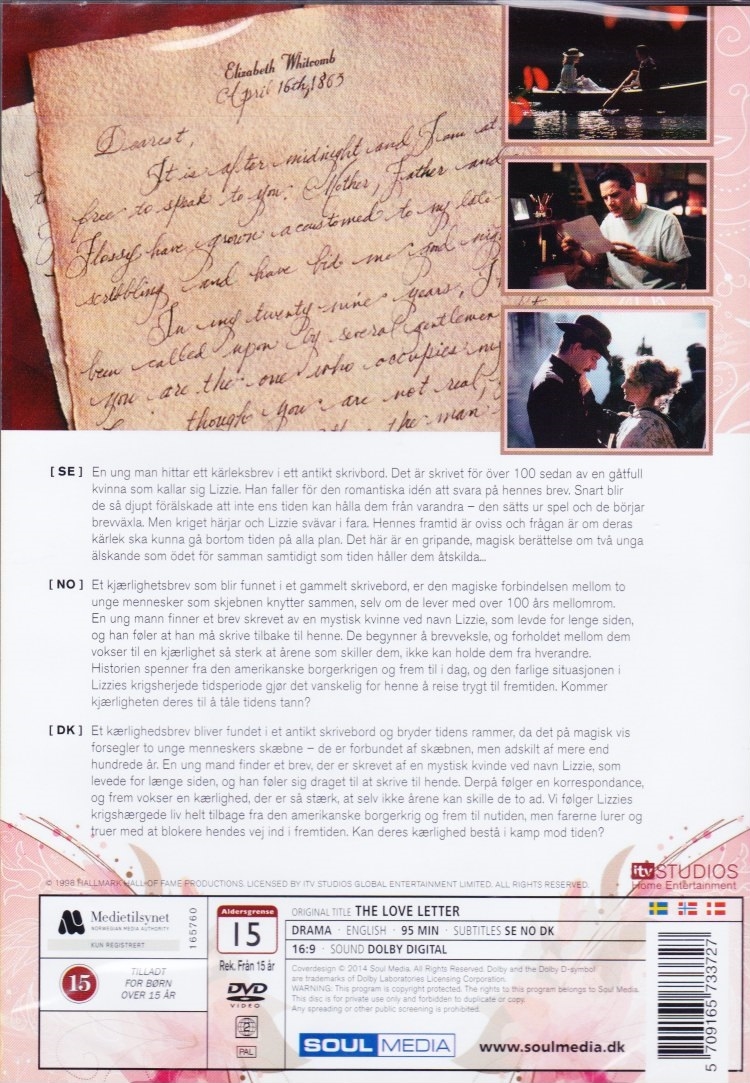 Elizabeth Whitcomb
April 16th, 1863
Dearest,
It is after midnight and I am at
free to speak to you. Mother, Father and
Flossy have grown accustomed to my late
scribbling and have bid me good nig
In my twenty nine years, I
been called upon by several gentlemen
you are the one who occupies my
though you are not real,
the man
[SE] En ung man hittar ett kärleksbrev i ett antikt skrivbord. Det är skrivet för över 100 sedan av en gåtfull
kvinna som kallar sig Lizzie. Han faller för den romantiska idén att svara på hennes brev. Snart blir
de så djupt förälskade att inte ens tiden kan hålla dem från varandra – den sätts ur spel och de börjar
brevväxla. Men kriget härjar och Lizzie svävar i fara. Hennes framtid är oviss och frågan är om deras
kärlek ska kunna gå bortom tiden på alla plan. Det här är en gripande, magisk berättelse om två unga
älskande som ödet för samman samtidigt som tiden håller dem åtskilda...
[NO] Et kjærlighetsbrev som blir funnet i et gammelt skrivebord, er den magiske forbindelsen mellom to
unge mennesker som skjebnen knytter sammen, selv om de lever med over 100 års mellomrom.
En ung mann finner et brev skrevet av en mystisk kvinne ved navn Lizzie, som levde for lenge siden,
og han føler at han må skrive tilbake til henne. De begynner å brevveksle, og forholdet mellom dem
vokser til en kjærlighet så sterk at årene som skiller dem, ikke kan holde dem fra hverandre.
Historien spenner fra den amerikanske borgerkrigen og frem til i dag, og den farlige situasjonen i
Lizzies krigsherjede tidsperiode gjør det vanskelig for henne å reise trygt til fremtiden. Kommer
kjærligheten deres til å tåle tidens tann?
[DK] Et kærlighedsbrev bliver fundet i et antikt skrivebord og bryder tidens rammer, da det på magisk vis
forsegler to unge menneskers skæbne – de er forbundet af skæbnen, men adskilt af mere end
hundrede år. En ung mand finder et brev, der er skrevet af en mystisk kvinde ved navn Lizzie, som
levede for længe siden, og han føler sig draget til at skrive til hende. Derpå følger en korrespondance,
og frem vokser en kærlighed, der er så stærk, at selv ikke årene kan skille de to ad. Vi følger Lizzies
krigshærgede liv helt tilbage fra den amerikanske borgerkrig og frem til nutiden, men farerne lurer og
truer med at blokere hendes vej ind i fremtiden. Kan deres kærlighed bestå i kamp mod tiden?
itv STUDIOS
Home Entertainment
© 1998 HALLMARK HALL OF FAME PRODUCTIONS. LICENSED BY ITV STUDIOS GLOBAL ENTERTAINMENT LIMITED. ALL RIGHTS RESERVED.
Medietilsynet
NORWEGIAN MEDIA AUTHORITY
KUN REGISTRERT
165760
15
TILLADT
FOR BØRN
OVER 15 ÅR
Aldersgrense
15
Rek. Från 15 år
DVD
VIDEO
2
PAL
ORIGINAL TITLE THE LOVE LETTER
DRAMA · ENGLISH · 95 MIN · SUBTITLES SE NO DK
16:9 · SOUND DOLBY DIGITAL
Coverdesign © 2014 Soul Media. All Rights Reserved. Dolby and the Dolby D-symbol
are trademarks of Dolby Laboratories Licensing Corporation.
WARNING: This program is copyright protected. The rights to this program belongs to Soul Media.
This disc is for private use only and forbidden to duplicate or copy.
Any spreading or other public screening is prohibited.
SOUL MEDIA
www.soulmedia.dk
5 709165 733727